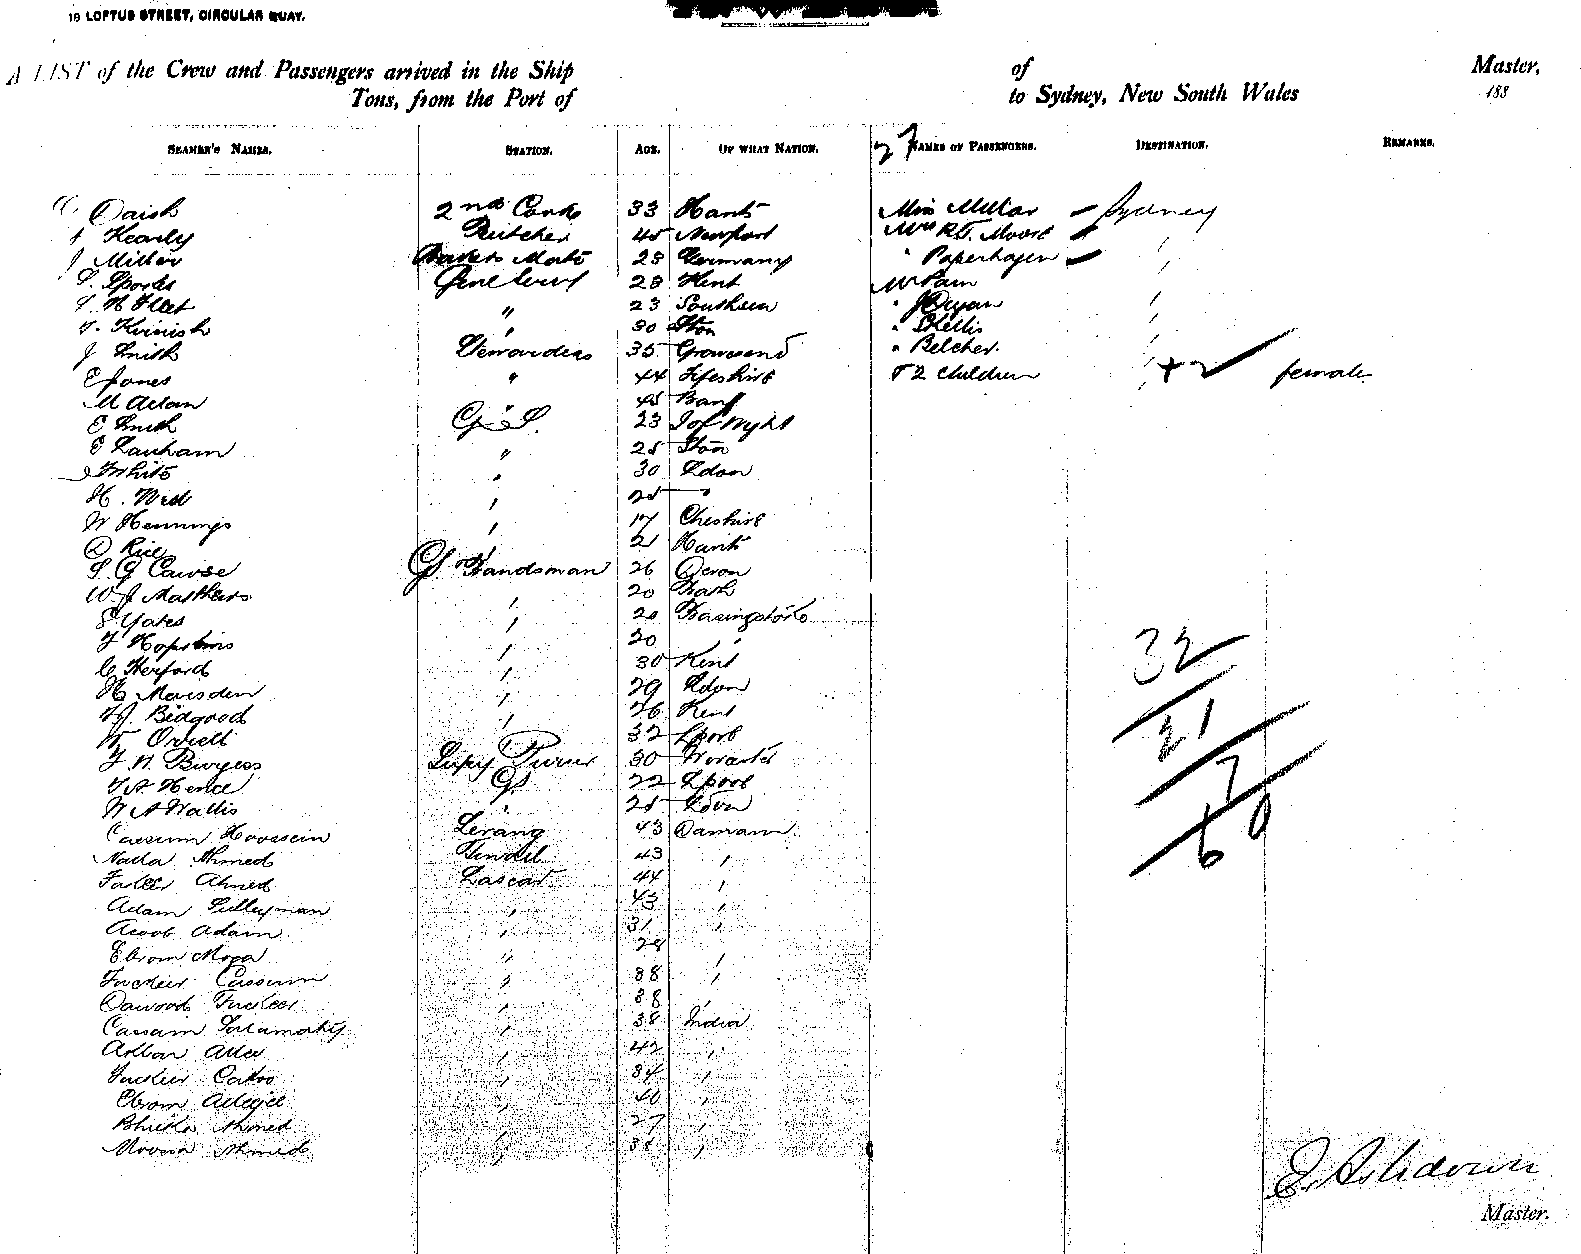 19 LOFTUS STREET, CIRCULAR QUAY.
A LIST of the Crew and Passengers arrived in the Ship of Master,
Tons, from the Port of to Sydney, New South Wales 188
SEAMEN'S NAMES. STATION. AGE. OF WHAT NATION. NAMES OF PASSENGERS. DESTINATION. REMARKS.
Daish 2nd Cook 33 Hants Miss Millar Sydney
Kearly Butcher 45 Newport Mrs R.T. Moore
J Miller Bakers Mate 28 Germany " Paperhagen
S. Spooks Genl Servt 28 Kent Mr Pain
Fleet " 23 Southsea "
" 30 Ston "
J Smith Stewardess 35 Gravesend " Belcher
E Jones " 44 Fifeshire & 2 children + 2 female
M Allan " 45 Banff
E Smith G. S. 23 I of Wight
E Lanham " 25 Ston
White " 30 Ldon
H. " 25 "
W Hennings " 17 Cheshire
Rice " 21 Hants
S. G Cawse GS Bandsman 26 Devon
W J Matthews " 20 Bath
S Yates " 20 Basingstoke
F Hopkins " 20 "
C Herford " 30 Kent 32
H Marsden " 29 Ldon
Bidgood " 26 Kent 21
Orrell " 32 Lpool
F. W. Burgess 30 Worcester 7
Hence GS 22 Lpool
W A Wallis " 25 Ldon 60
Cassum Hoossein Serang 43 Damaun
Nada Ahmed Tindal 43 "
Ahmed Lascar 44 "
Adam Sulleyman " 43 "
Acoob Adam " 31 "
Ebrom Moosa " 28 "
Fuckeer Cassum " 38 "
Dawood Fuckeer " 38 "
Cassam " 38 India
" 42 "
Fuckeer " 34 "
Ebrom " 40 "
Bhika Ahmed " 27 "
Moosa Ahmed " 38 "
E. Ashdown
Master.